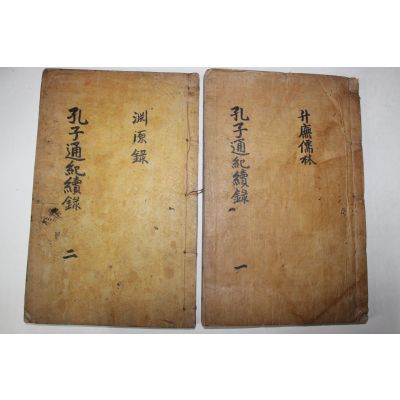 升廡儒林
孔子通紀續錄
一
淵源錄
孔子通紀續錄
二